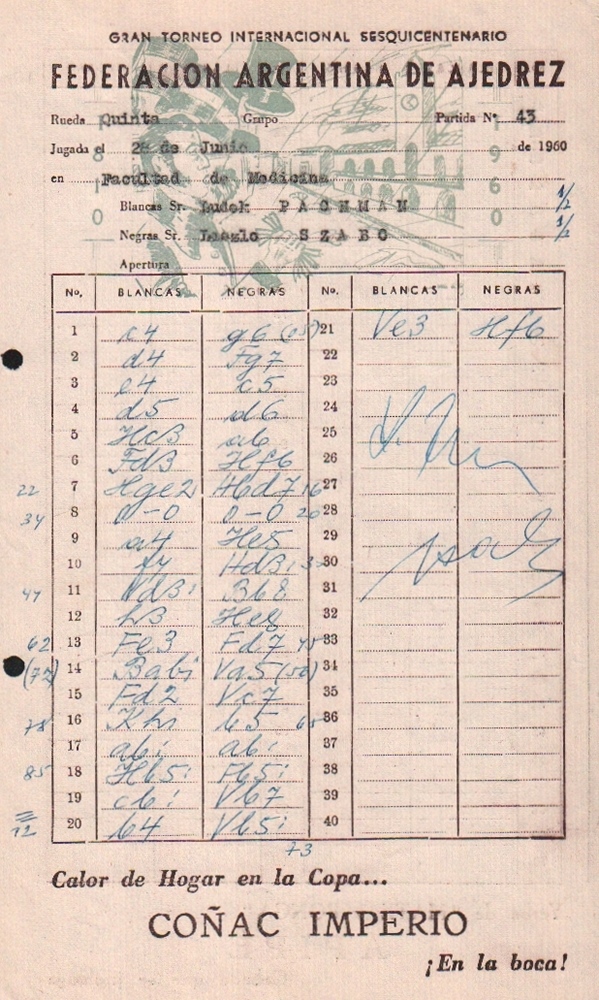 GRAN TORNEO INTERNACIONAL SESQUICENTENARIO
FEDERACION ARGENTINA DE AJEDREZ
Rueda Quinta Grupo Partida Nº 43
Jugada el 28 de Junio de 1960
en Facultad de Medicina
Blancas Sr. Ludek PACHMAN 1/2
Negras Sr. Laszlo SZABO 1/2
Apertura
1810 1960
Nº. BLANCAS NEGRAS Nº. BLANCAS NEGRAS
1 c4 g6 (05) 21 Ve3 Hf6
2 d4 Fg7 22
3 e4 c5 23
4 d5 d6 24
5 Hc3 a6 25
6 Fd3 Hf6 26
22 7 Hge2 Hbd7 16 27
34 8 0-0 0-0 20 28
9 a4 He5 29
10 Hd3: 30
47 11 Vd3: Bb8 31
12 h3 He8 32
62 13 Fe3 Fd7 33
(72) 14 Bab1 Va5 34
15 Fd2 Vc7 35
78 16 Kh1 b5 36
17 ab: ab: 37
85 18 Hb5: Fb5: 38
19 cb: Vb7 39
12 20 b4 Vb5: 40
73
Calor de Hogar en la Copa...
COÑAC IMPERIO
¡En la boca!